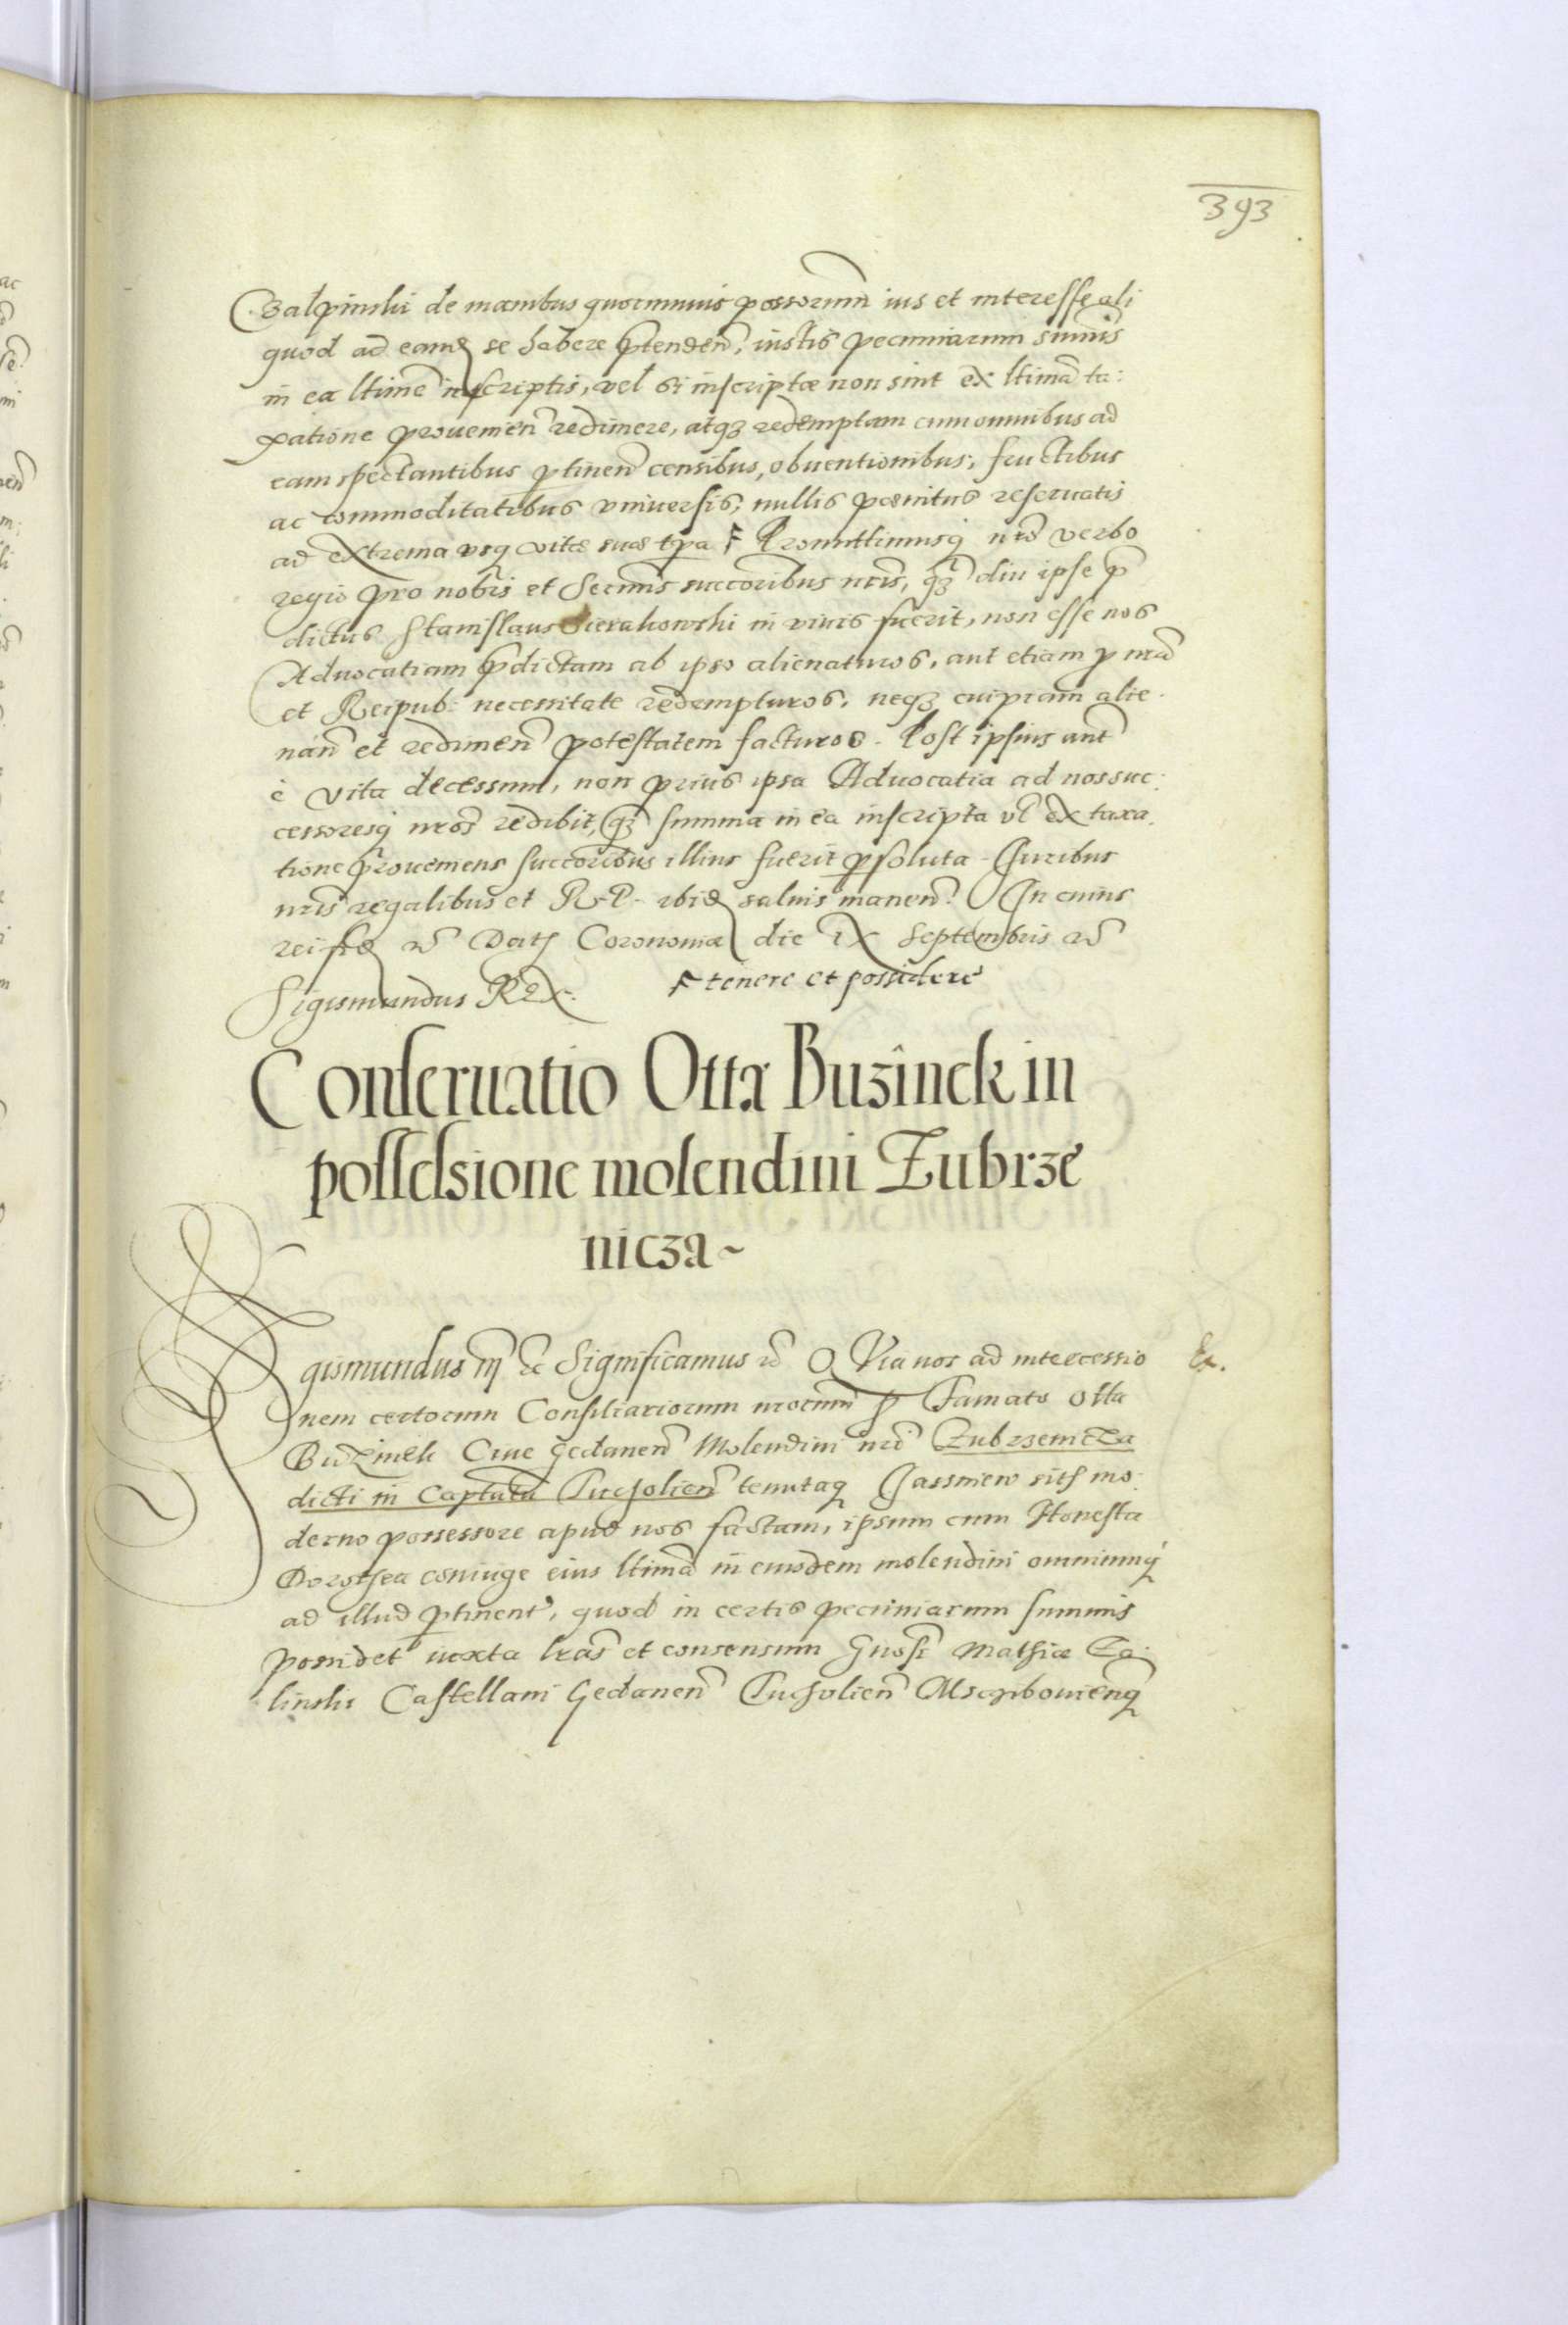 393
Czalpinski de manibus quorumuis possorum ius et interesse ali
quod ad eand se habere ptenden, iustis pecuniarum summis
in ea ltime inscriptis, vel si inscriptæ non sint ex ltima ta:
xatione prouenien redimere, atq3 redemptam cum omnibus ad
eam spectantibus ptinen censibus, obuentionibus, fructibus
ac commoditatibus vniuersis, nullis poenitus reseruatis
ad extrema vsq vitæ suæ tpa F Promittimusq nro verbo
regio pro nobis et Sermis succoribus nris, q3 diu ipse p
dictus Stanislaus Sierakowski in viuis fuerit, non esse nos
Aduocatiam pdictam ab ipso alienaturos, aut etiam p nra
et Reipub: necessitate redempturos, neq3 cuipiam alie
nan et redimen potestatem facturos. Post ipsius aut
è vita decessum, non prius ipsa Aduocatia ad nos suc:
cessoresq nros redibit, q3 summa in ea inscripta vl ex taxa
tione proueniens succoribus illius fuerit psoluta. Iuribus
nris regalibus et R. P. ibid saluis manen. In cuius
rei fid rc Dat Coronoviæ die ix Septembris rc
Sigismundus Rex. F tenere et possidere
Conseruatio Otta Buzinck in
possessione molendini Zubrze
nicza ~
Sigismundus III rc Significamus rc Quia nos ad intercessio Ex.
nem certorum Consiliariorum nrorum p Famato Otta
Buzinck Ciue Gedanen Molendini nri Zubrzenicza
dicti in Captatu Tucholien tenutaq Jassniew sit mo:
derno possessore apud nos factam, ipsum cum Honesta
Dorothea coniuge eius ltima in eiusdem molendini omniumq
ad illud ptinent, quod in certis pecuniarum summis
possidet iuxta lras et consensum Gnosi Mathiæ Za:
linski Castellani Gedanen Tucholien